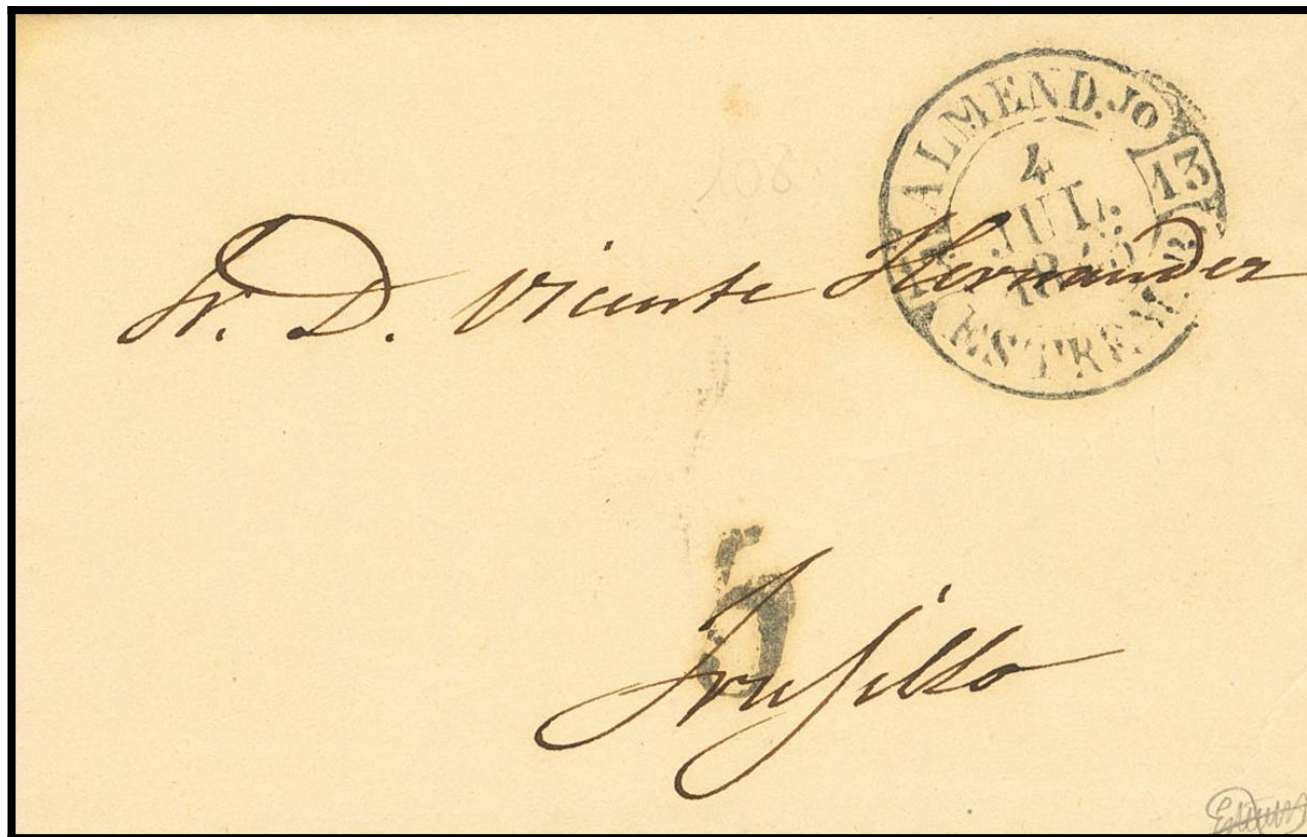 ALMEND.JO
13
4
JUL.
ESTREM.
Sr. D. Vicente Hernandez
Trujillo